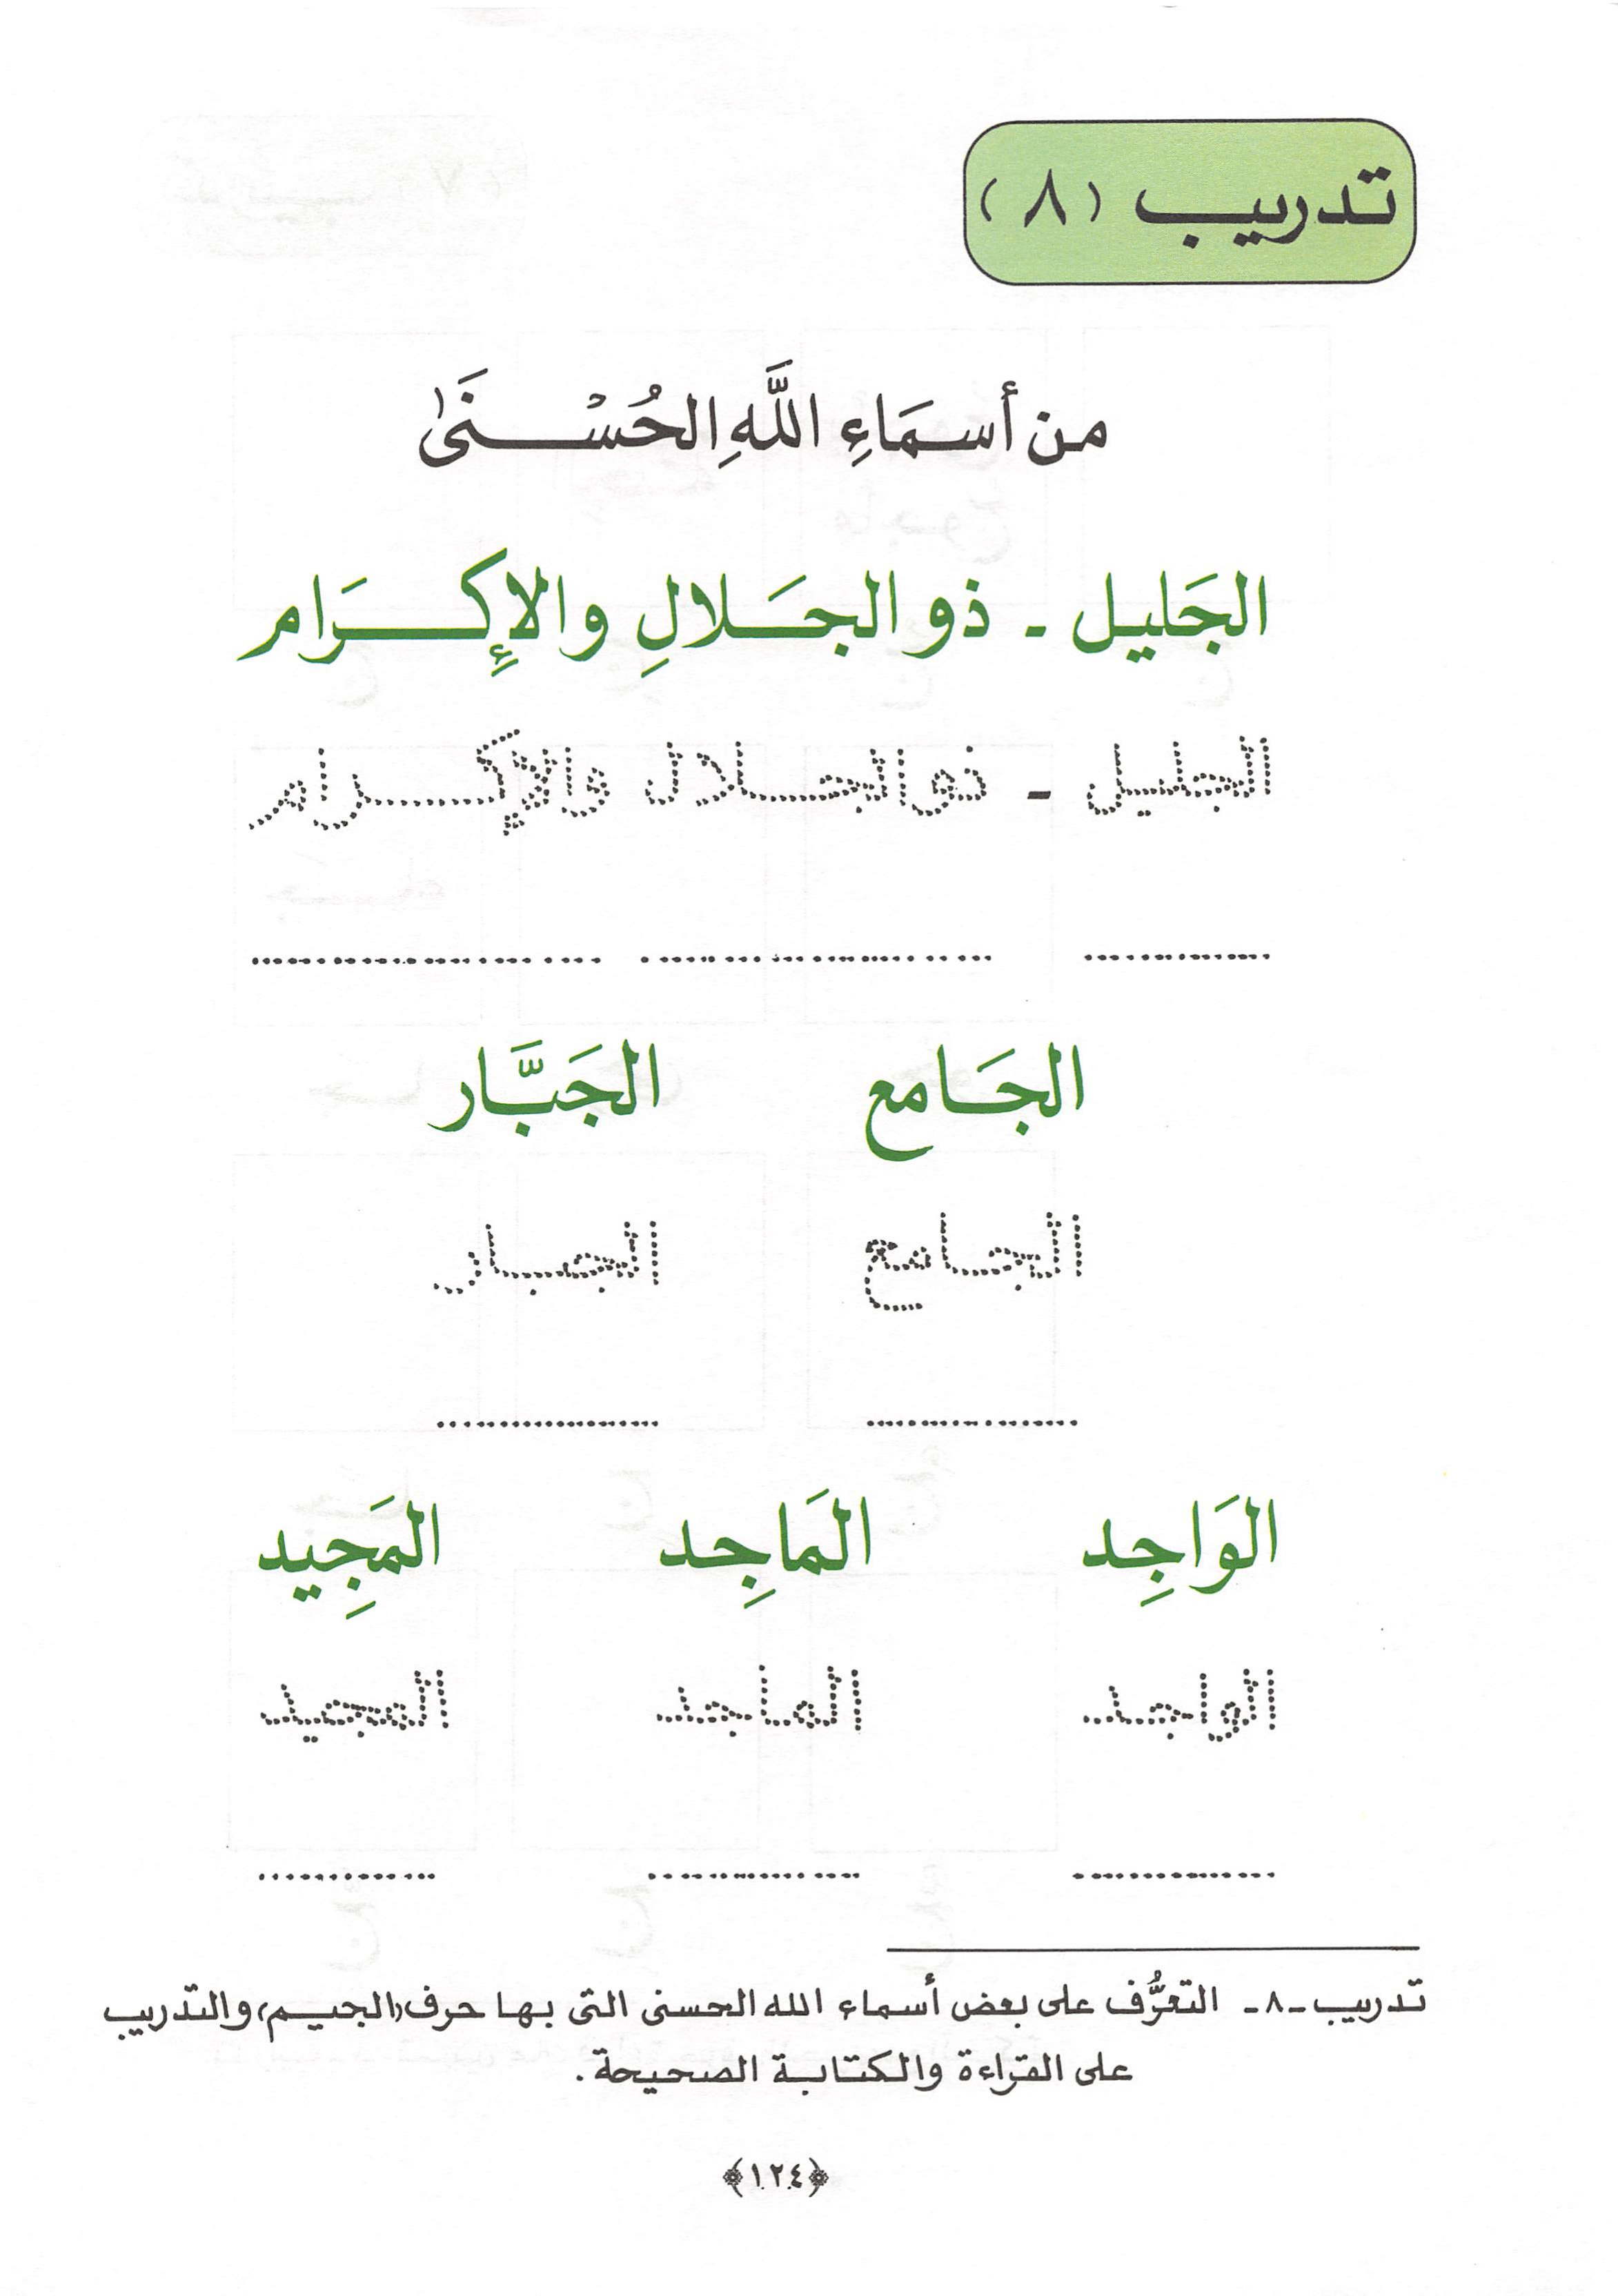 تدريب (٨)
من أسمَاءِ اللَّهِ الحُسْنَىٰ
الجَليل - ذو الجَلالِ والإِكرَام
الجليل - ذو الجلال والإكرام
الجَامع الجَبَّار
الجامع الجبار
الوَاجِد المَاجِد المَجِيد
الواجد الماجد المجيد
تدريب -٨- التعرُّف على بعض أسماء الله الحسنى التى بها حرف (الجيم) والتدريب
على القراءة والكتابة الصحيحة .
﴿١٢٤﴾